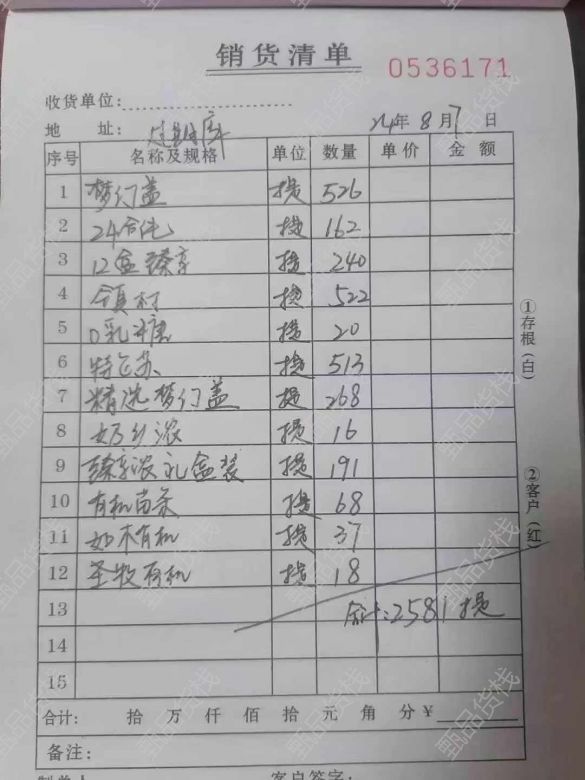 销货清单
0536171
收货单位:
地 址: 24年 8月 7日
序号 名称及规格 单位 数量 单价 金额
1 梦幻盖 提 526
2 24合纯 提 162
3 12盒臻享 提 240
4 提 522
5 0乳糖 提 20
6 特仑苏 提 513
7 精选梦幻盖 提 268
8 提 16
9 臻享浓礼盒装 提 191
10 有机苗条 提 68
11 有机 提 37
12 圣牧有机 提 18
13 合计:2581提
14
15
合计: 拾 万 仟 佰 拾 元 角 分 ¥
备注:
制单人 客户签字:
①存根(白)
②客户(红)
甄品货栈